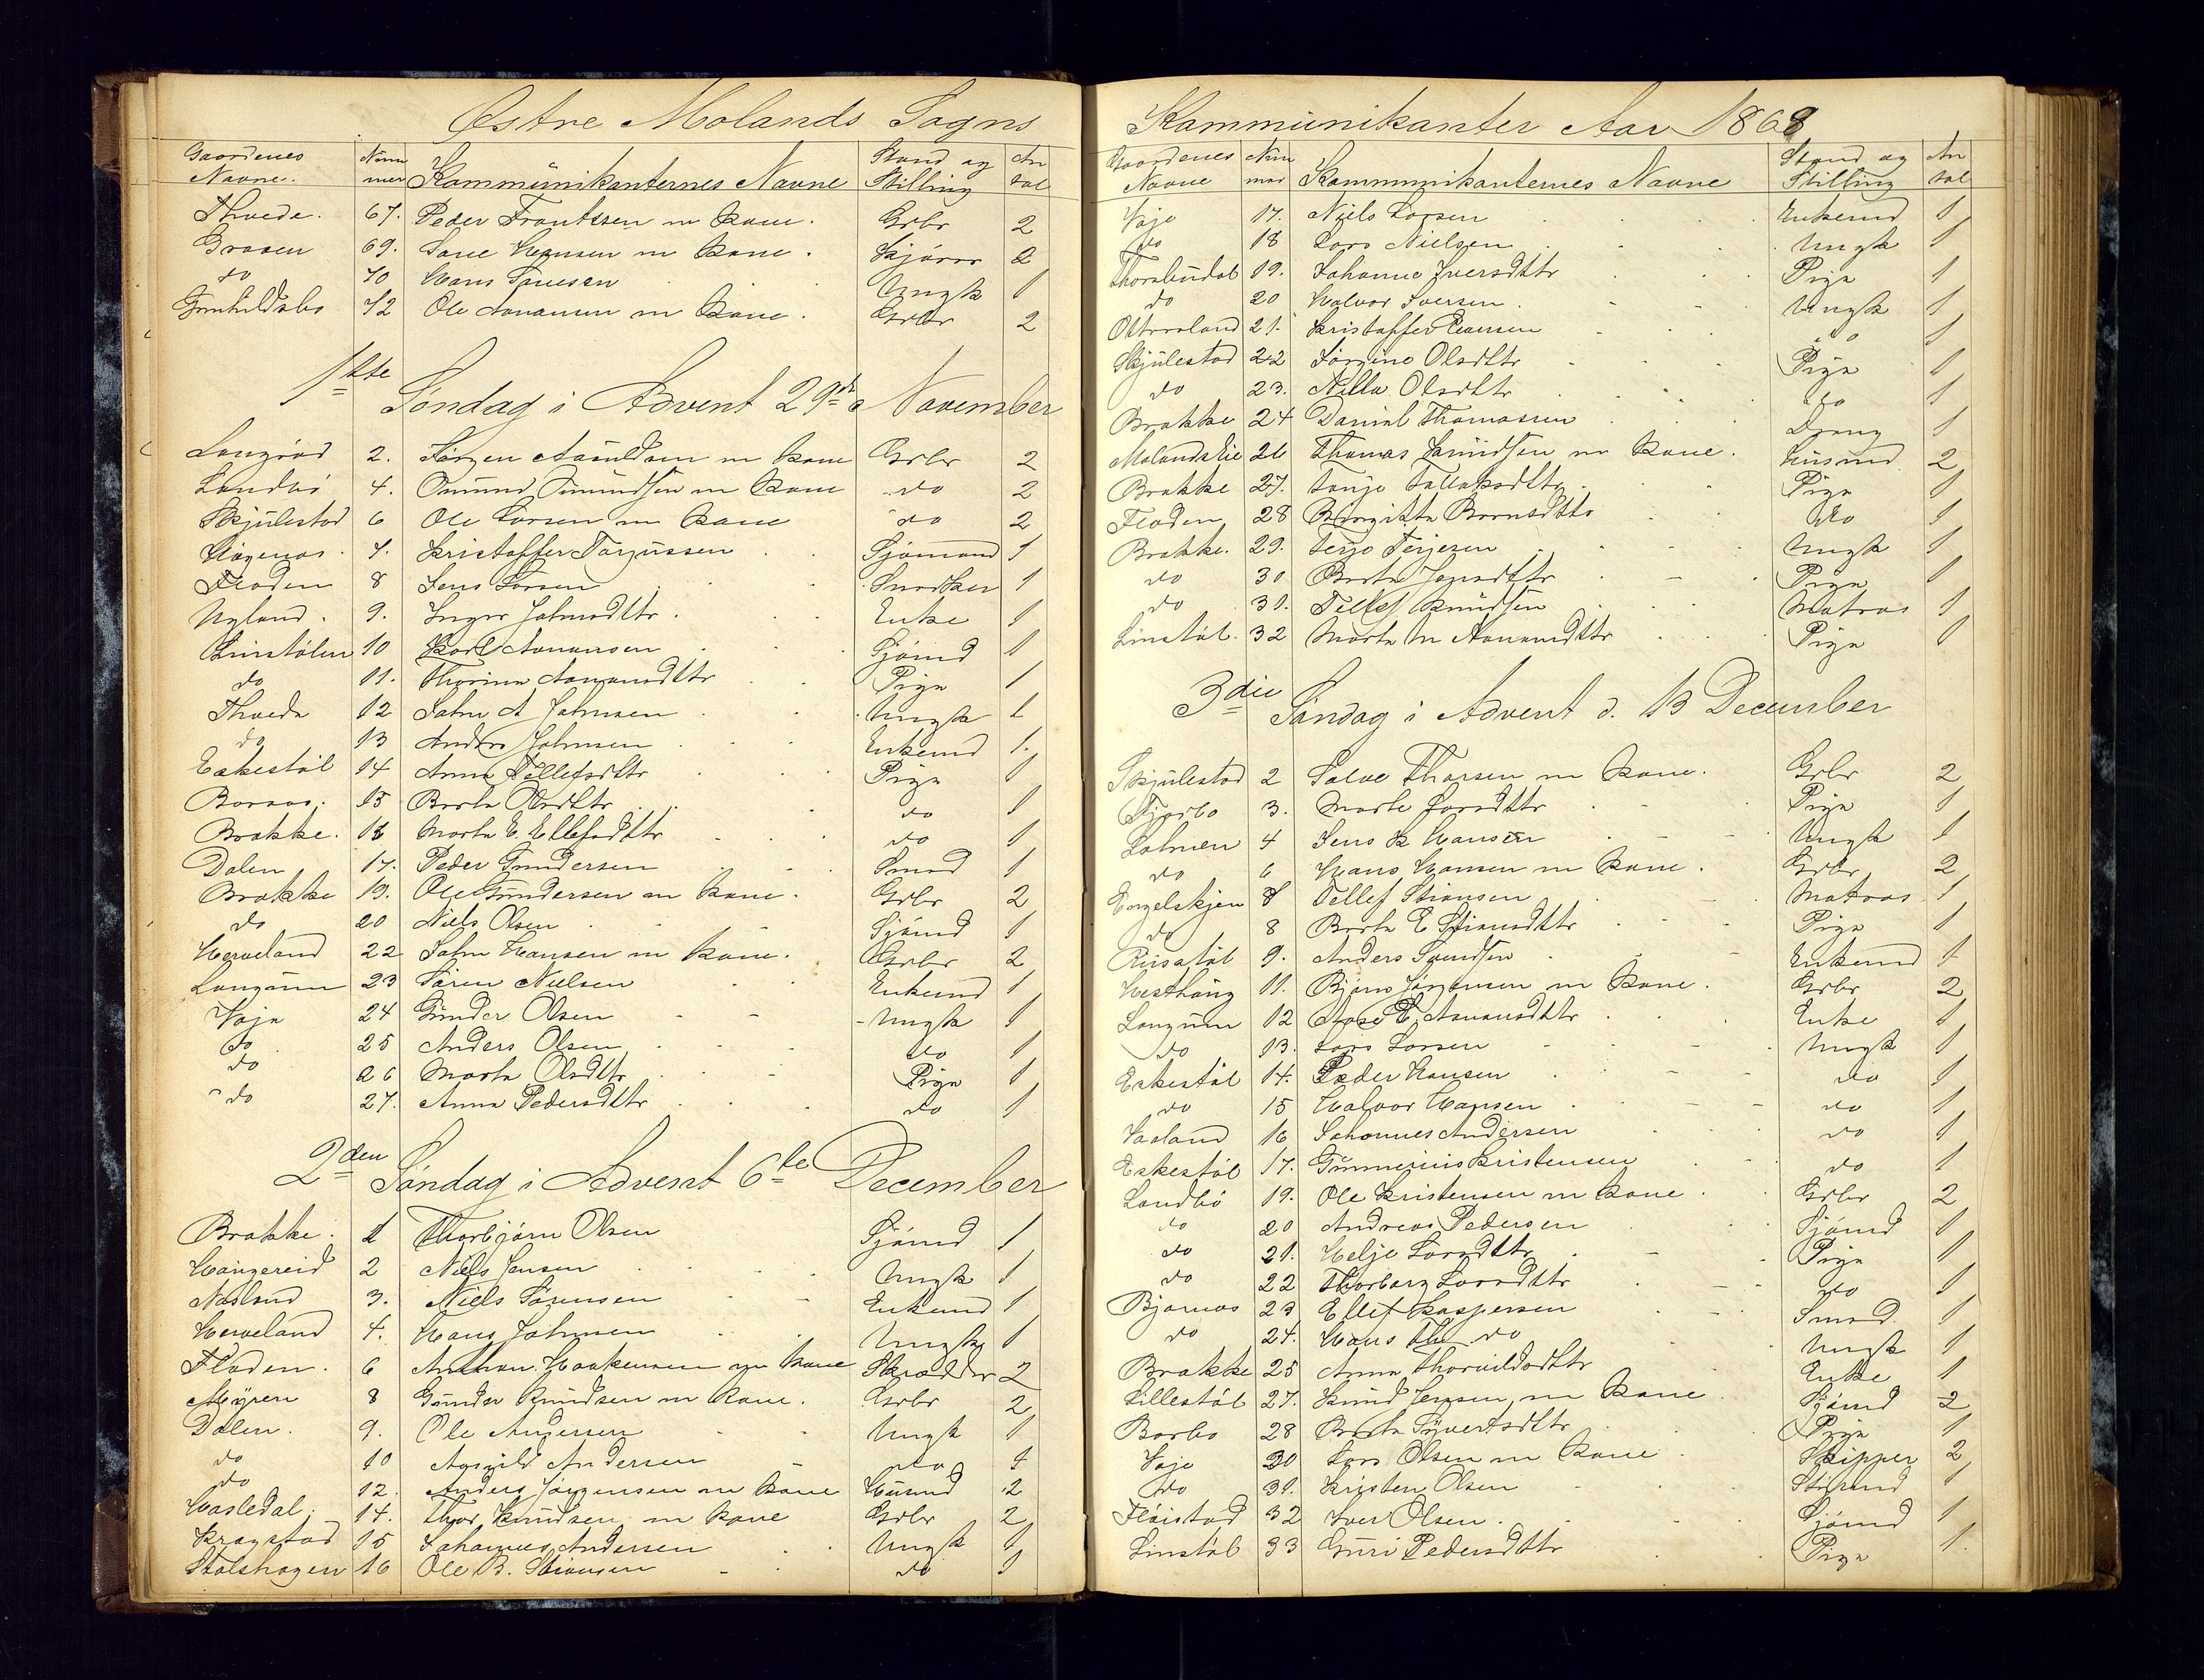 Østre Molands Sogns
Gaardenes Navne. Num mer Kommunikanternes Navne Stand og Stilling An tal
Thvede. 67. Peder Frantssen m Kone. Grbr 2
Graaen 69. Hansen m Kone. 2
do 70 Hans Ungk 1
Gunhildsbo 72 Ole Aanansen m Kone. Grbr 2
1ste Søndag i Advent 29de November
Langråd 2. Jørgen Aasuldsen m Kone Grbr 2
Landbö 4. Omund Omundsen m Kone do 2
Skjulestad 6 Ole Larsen m Kone do 2
Hågenes. 7. Kristoffer Tarjussen Sjömand 1
Floden 8 Jens Larsen Snedker 1
Nyland. 9. Inger Johnsdttr. Enke 1
Linstölen 10 Karl Aanansen Sjömd 1
do 11. Thorine Aanansdttr Pige 1
Thvede 12 John A Johnsen Ungk 1
do 13 Anders Johnsen Enkemd 1.
Eskestöl 14 Anne Tellefsdttr Pige 1
Boraas. 15 Berte Olsdttr do 1
Brække. 16 Marte E. Ellefsdttr do 1
Dalen 17. Peder Gundersen Smed 1
Brække 19. Ole Gundersen m Kone. Grbr 2
do 20 Niels Olsen Sjömd 1
Herveland 22 John Hansen m Kone. Grbr 2
Langum 23 Sören Nielsen Enkemd 1
Vaje 24 Gunder Olsen Ungk 1
do 25 Anders Olsen do 1
do 26 Marte Olsdttr Pige 1
do 27. Anne Pedersdttr do 1
2den Søndag i Advent 6te December
Brække. 1 Thorbjörn Olsen Sjömd 1
Haugereid 2 Niels Jensen Ungk 1
Næsland 3. Niels Sörensen Enkemd 1
Herveland 4. Hans Johnsen Ungk 1
Floden. 6 Anthon Haakensen m Kone Skræder 2
Myren 8 Gunder Knudsen m Kone. Grbr 2
Dalen. 9. Ole Andersen Ungk 1
do 10 Andersen do 1
do 12. Anders Jörgensen m Kone Husmd 2
Hasledal. 14. Thor Knudsen m Kone Grbr 2
Kragstad 15 Johannes Andersen Ungk 1
Stølshagen 16 Ole B. Stiansen do 1
Kommunikanter Aar 1868
Gaardenes Navne Num mer Kommunikanternes Navne Stand og Stilling An tal
Vaje 17. Niels Larsen Enkemd 1
do 18 Lars Nielsen Ungk 1
Thorsbudal 19. Johanne Iversdttr Pige 1
do 20 Halvor Iversen Ungk 1
21. Kristoffer do 1
Skjulestad 22 Jörgine Olsdttr Pige 1
do 23. Olsdttr do 1
Brække 24 Daniel Thomassen Dreng 1
Molands Eie 26 Thomas Knudsen m Kone. Husmd 2
Brække 27. Tonje Tallaksdttr. Pige 1
Floden 28 Birgitte do 1
Brække. 29. Terje Terjesen Ungk 1
do 30 Berte Jensdttr Pige 1
do 31. Tellef Knudsen Matros 1
Linstöl. 32 Marte M Aanansdttr Pige 1
3die Søndag i Advent d. 13 December
Skjulestad 2 Salve Thorsen m Kone. Grbr 2
3. Marte Larsdttr Pige 1
Holmen 4 Jens K Hansen Ungk 1
do 6 Hans Hansen m Kone. Grbr 2
Engelskjen 7 Tellef Stiansen Matros 1
do 8 Berte E Stiansdttr Pige 1
Riisstöl 9. Anders Svendsen Enkemd 1
Westhaug 11. Bjarn Jörgensen m Kone. Grbr 2
Langum 12 Aase E. Aanansdttr Enke 1
do 13. Lars Larsen Ungk 1
Eskestöl 14. Peder Hansen do 1
do 15 Halvor Hansen do 1
Vaaland 16 Johannes Andersen do 1
Eskestöl 17. Kristensen do 1
Landbö 19. Ole Kristensen m Kone Grbr 2
do 20 Andreas Pedersen Sjömd 1
do 21. Helje Larsdttr Pige 1
do 22 Thorborg Larsdttr do 1
Bjornæs 23 Ellef Kaspersen Smed 1
do 24. Hans Th do Ungk 1
Brække 25 Anne Thorvildsdttr Enke 1
Lillestöl 27. Knud Jensen m Kone Sjömd 2
Barbo 28 Berte Syvertsdttr Pige 1
Vaje 30 Lars Olsen m Kone Skipper 2
do 31. Kristen Olsen Styrmd 1
Flöistad 32 Iver Olsen. Sjömd 1
Linstöl 33 Guri Pedersdttr Pige 1.